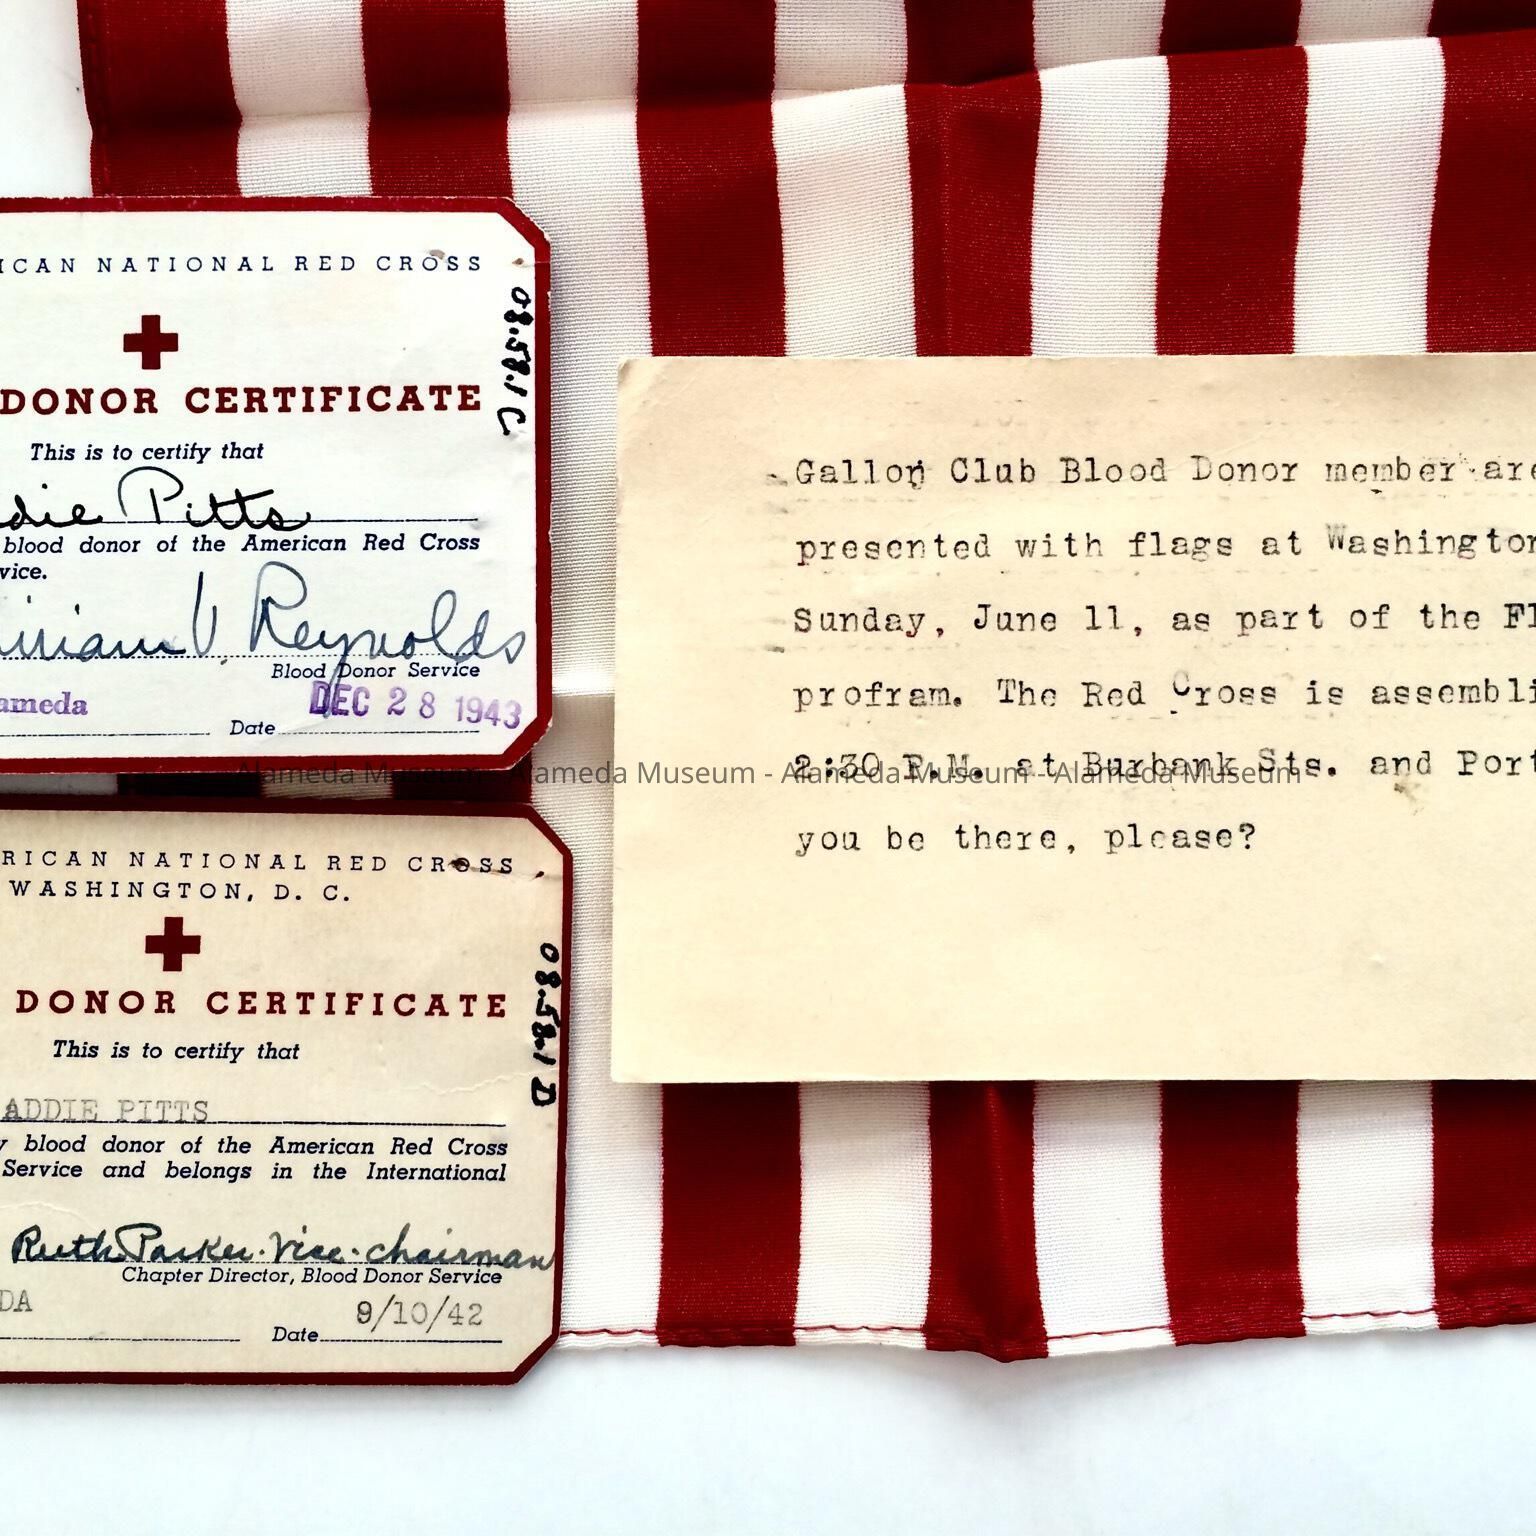 ICAN NATIONAL RED CROSS
DONOR CERTIFICATE
This is to certify that
die Pitts
blood donor of the American Red Cross
vice.
V. Reynolds
Blood Donor Service
ameda
DEC 28 1943
Date
08.58.1 C
RICAN NATIONAL RED CROSS
WASHINGTON, D. C.
DONOR CERTIFICATE
This is to certify that
ADDIE PITTS
y blood donor of the American Red Cross
Service and belongs in the International
Ruth Parker. Vice-chairman
Chapter Director, Blood Donor Service
DA
9/10/42
Date
08.58.1 D
Gallon Club Blood Donor member are
presented with flags at Washington
Sunday, June 11, as part of the Fl
profram. The Red Cross is assembli
2:30 P.M. at Burbank Sts. and Port
you be there, please?
Alameda Museum - Alameda Museum - Alameda Museum - Alameda Museum